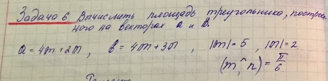 Задача 6 Вычислить площадь треугольника, построен
ного на векторах a и b.
a = 4m + 2n , b = 4m + 3n , |m| = 5 , |n| = 2
(m^n) = π/6